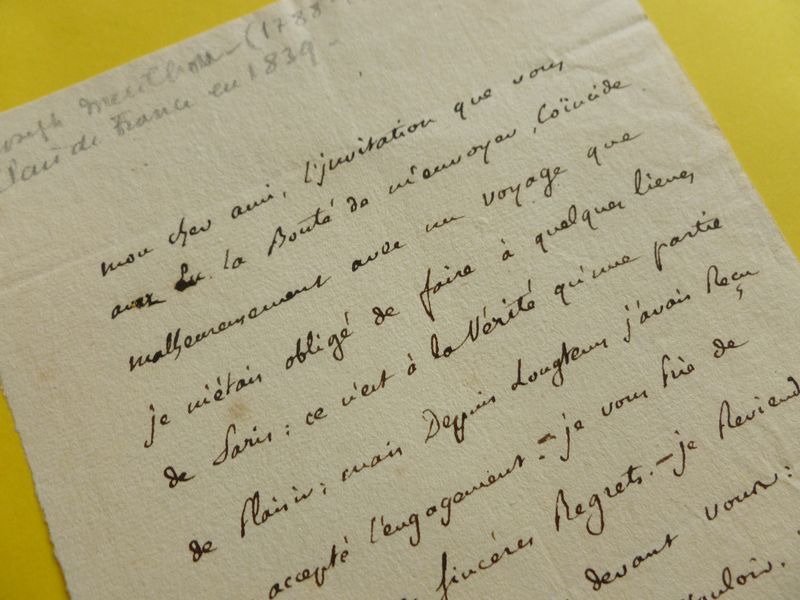 (1788-
Pair de France en 1839 -
mon cher ami, l'invitation que vous
avez Eu la Bonté de m'envoyer, Coïncide
malheureusement avec un voyage que
je m'étais obligé de faire à quelques lieues
de Paris; ce n'est à la Vérité qu'une partie
de Plaisir; mais Depuis Longtems j'avais Reçu
accepté l'engagement - je vous Prie de
sincères Regrets. - je Reviend
devant vous:
vouloir.